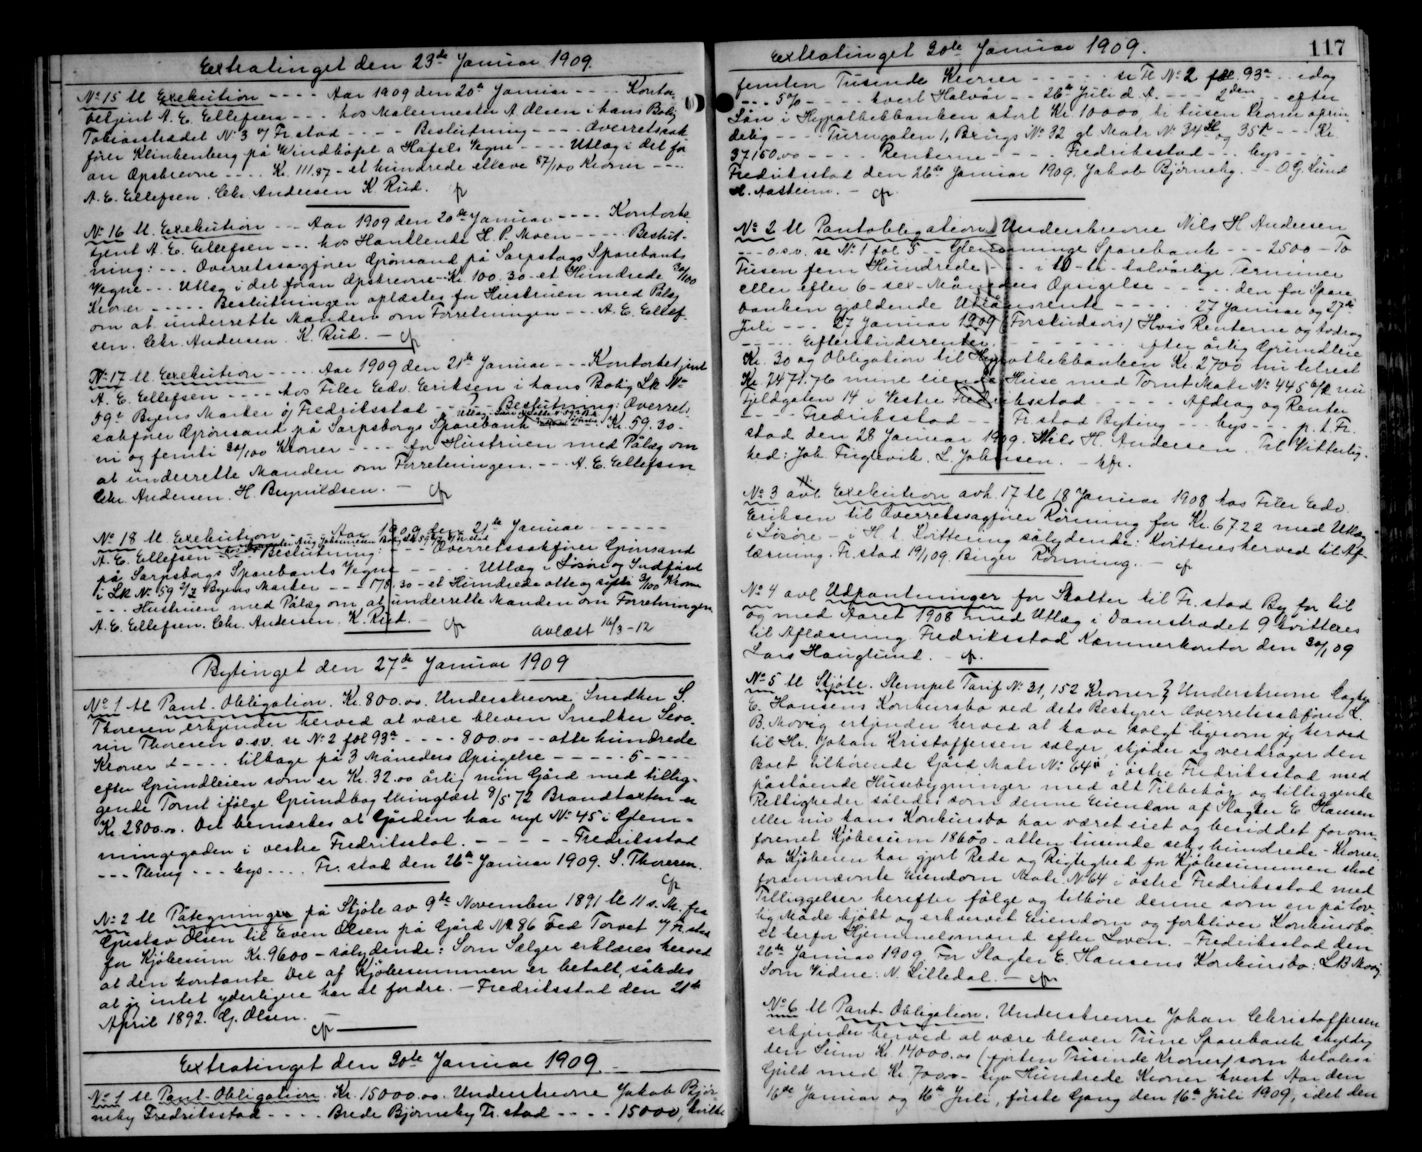 Extratinget den 23de Januar 1909.
No 15 tl Execution ---- Aar 1909 den 20de Januar ---- Kontor
betjent A. E. Ellefsen --- hos Malermester A Olsen i hans Bolig
No 3 i Fr.stad ---- Beslutning ---- Overretssak
fører Klinkenberg på Vegne ---- Utlæg i det for
an Opskrevne ---- Kr. 111.87 - et hundrede elleve 87/100 Kroner ----
A. E. Ellefsen. Chr. Andersen K Rud.
No 16 tl. Execution --- Aar 1909 den 20de Januar ---- Kontorbe
tjent A. E. Ellefsen --- hos Handlende H. P. Moen ---- Beslut-
ning: --- Overretssagfører Grønsand på Sarpsborgs Sparebanks
Vegne --- Utlæg i det foran Opskrevne Kr. 100.30 - et Hundrede 30/100
Kroner ---- Beslutningen oplæstes for Hustruen med Pålæg
om at underrette Manden om Forretningen --- A. E. Ellef-
sen. Chr. Andersen. K. Rud. -
No 17 tl. Execution ---- Aar 1909 den 21de Januar --- Kontorbetjent
A. E. Ellefsen ---- hos Filer Edv. Eriksen i hans Bolig Lk No
59 Byens Marker i Fredriksstad --- Beslutning: Overrets
sakfører Grønsand på Sarpsborgs Sparebank Kr. 59.30 -
ni og femti 30/100 Kroner ---- for Hustruen med Pålæg om
at underrette Manden om Forretningen. --- A. E. Ellefsen
Chr. Andersen. H. Brynildsen. -
No 18 tl Execution --- Aar 1909 den 21de Januar -----
A. E. Ellefsen Beslutning: --- Overretssakfører Grønsand
på Sarpsborgs Sparebanks Vegne ---- Utlæg i Løsøre og Indført
i Lk No 59 Byens Marker --- 178.30 - et Hundrede otte og sytti 30/100 Krone
--- Hustruen med Pålæg om at underrette Manden om Forretningen
A. E. Ellefsen. Chr. Andersen. K. Rud. -
avlæst 16/3-12
Bytinget den 27de Januar 1909
No 1 tl Pant. Obligation. Kr. 800.00. Underskrevne Snedker S.
Thoresen erkjender herved at være bleven Snedker
Thoresen o.s.v. se No 2 fol 93 ---- 800.00 -- otte hundrede
Kroner ---- tilbage på 3 Måneders Opsigelse ----- 5 ----
efter Grundleien som er Kr. 32.00 årlig min Gård med tillig-
gende Tomt ifølge Grundbog thinglæst 8/5 72 Brandtaxten er
Kr. 2800.00. Det bemærkes at Gården har nyt No 45 i Glem-
mingegaden i vestre Fredriksstad. ----- Fredriksstad
--- Thing --- bys ---- Fr.stad den 26de Januar 1909. S. Thoresen.
No 2 tl Påtegninger på Skjøte av 9de November 1891 tl 11 s. M. fra
Gustav Olsen til Even Olsen på Gård No 86 Ved Torvet i Fr.stad
for Kjøbesum Kr. 9600 - sålydende: Som Sælger erklæres herved
at den kontante Del af Kjøbesummen er betalt, således
at jeg intet yderligere har at fordre. - Fredriksstad den 21de
April 1892. G. Olsen.
Extratinget den 30te Januar 1909.
No 1 tl Pant-Obligation. Kr. 15000.00. Underskrevne Jakob Bjør-
neby Fredriksstad ---- Brede Bjørneby Fr.stad ---- 15000,
Extratinget 30te Januar 1909.
117
femten Tusende Kroner ----- se Tl No 2 fol. 93 -- idag
--- 5% ---- hvert Halvår -- 26de Juli d. A. --- 2den efter
Lån i Hypothekbanken stort Kr. 10000, ti tusen Kroner oprin
delig --- Turngaten 1, Brugs No 32 gl Matr No 34 og 35 --- Kr.
37150.00 ---- Renterne ---- Fredriksstad --- bys ---
Fredriksstad den 26de Januar 1909. Jakob Bjørneby. - O. G. Lund
No 2 tl Pantobligation Underskrevne Nils H Andersen
--- o.s.v. se No 1 fol 5 Glemminge Sparebank --- 2500 - To
Tusen fem Hundrede --- i 10 - ti - halvårlige Terminer
eller efter 6 - sex - Måneders Opsigelse ----- den for Spare
banken gjældende Utlånsrente ----- 27 Januar og 27de
Juli --- 27 Januar 1909 (Forskudsvis) Hvis Renterne og Avdrag
----- Efterskudsrenter. ----- efter årlig Grundleie
Kr. 30 og Obligation til Hypothekbanken Kr. 2700 nu tilrest
Kr. 2471.76 mine eiende Huse med Tomt Matr No 445 nu
Fjeldgaten 14 i Vestre Fredriksstad ----- Afdrag og Renter
---- Fredriksstad --- Fr.stad Byting --- bys --- p. t. Fr.
stad den 28 Januar 1909. Nils H. Andersen. Til Vitterlig-
hed: Joh Fuglevik. L Johnsen. -
No 3 avl. Execution avh. 17 tl 18 Januar 1908 hos Filer Edv.
Eriksen til Overretssagfører Rørning for Kr. 67.22 med Utlæg
i Løsøre - i H. t. Kvittering sålydende: Kvitteres herved til Af-
læsning. Fr.stad 19/1 09. Birger Rønning. -
No 4 avl Udpantninger for Skatter til Fr.stad By for til
og med Aaret 1908 med Utlæg i Damstrædet 9 kvitteres
til Aflæsning Fredriksstad Kæmnerkontor den 30/1 09
Lars Hauglund. -
No 5 tl Skjøte. Stempel Tarif No 31, 152 Kroner. Underskrevne Slagter
E. Hansens Konkursbo ved dets Bestyrer Overretssakfører L.
B. Movig erkjender herved at have solgt ligesom jeg herved
til Hr. Johan Kristoffersen sælger, skjøder og overdrager den
Boet tilhørende Gård Matr No 64 i østre Fredriksstad med
påstående Husebygninger med alt Tilbehør og tilliggende
Rettigheder således som denne Eiendom af Slagter E Hansen
eller nu hans Konkursbo har været eiet og besiddet for om-
forenet Kjøbesum 18600 - atten tusende seks hundrede - Kroner.
Da Kjøberen har gjort Rede og Rigtighed for Kjøbesummen skal
forannævnte Eiendom Matr No 64 i østre Fredriksstad med
Tilliggelser herefter følge og tilhøre denne som en på lov-
lig Måde kjøbt og erhvervet Eiendom og forbliver Konkursboet
et herfor Hjemmelsmand efter Loven. - Fredriksstad den
26de Januar 1909. For Slagter E. Hansens Konkursbo: L B Movig
Som Vidne: N. Lilledal. -
No 6 tl Pant Obligation. Underskrevne Johan Christoffersen
erkjender herved at være bleven Trine Sparebank skyldig
den Sum Kr. 14000.00 (fjorten Tusinde Kroner) som betales i
Guld med Kr. 700.00 - syv Hundrede Kroner hvert Aar den
16de Januar og 16de Juli, første Gang den 16de Juli 1909, idet den